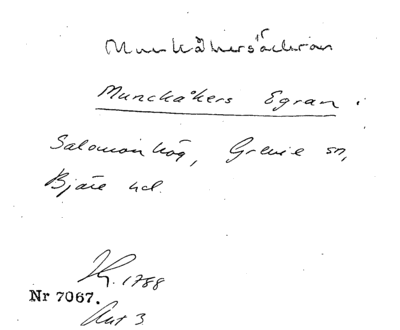 Munckåkers Egran i
Salomonhög, Grevie sn,
Bjäre hd.
Hy. 1788
Nr 7067.
Akt 3